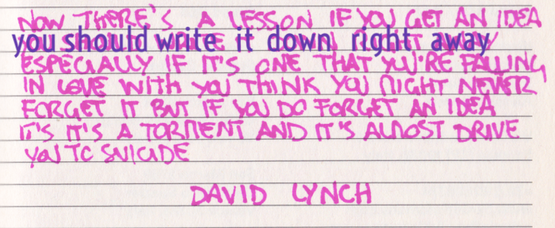 NOW THERE'S A LESSON IF YOU GET AN IDEA
you should write it down right away
ESPECIALLY IF IT'S ONE THAT YOU'RE FALLING
IN LOVE WITH YOU THINK YOU MIGHT NEVER
FORGET IT BUT IF YOU DO FORGET AN IDEA
IT'S IT'S A TORMENT AND IT'S ALMOST DRIVE
YOU TO SUICIDE
DAVID LYNCH